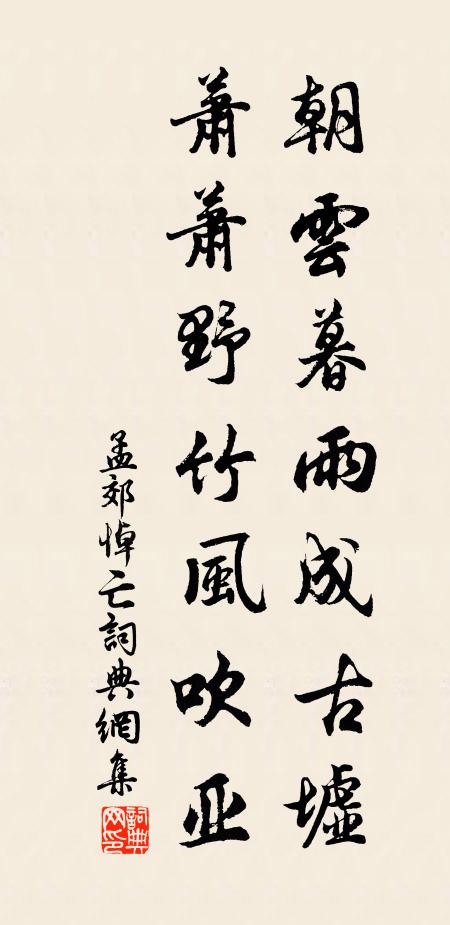 朝雲暮雨成古墟
蕭蕭野竹風吹亚
孟郊悼亡詞典網集
詞典网印